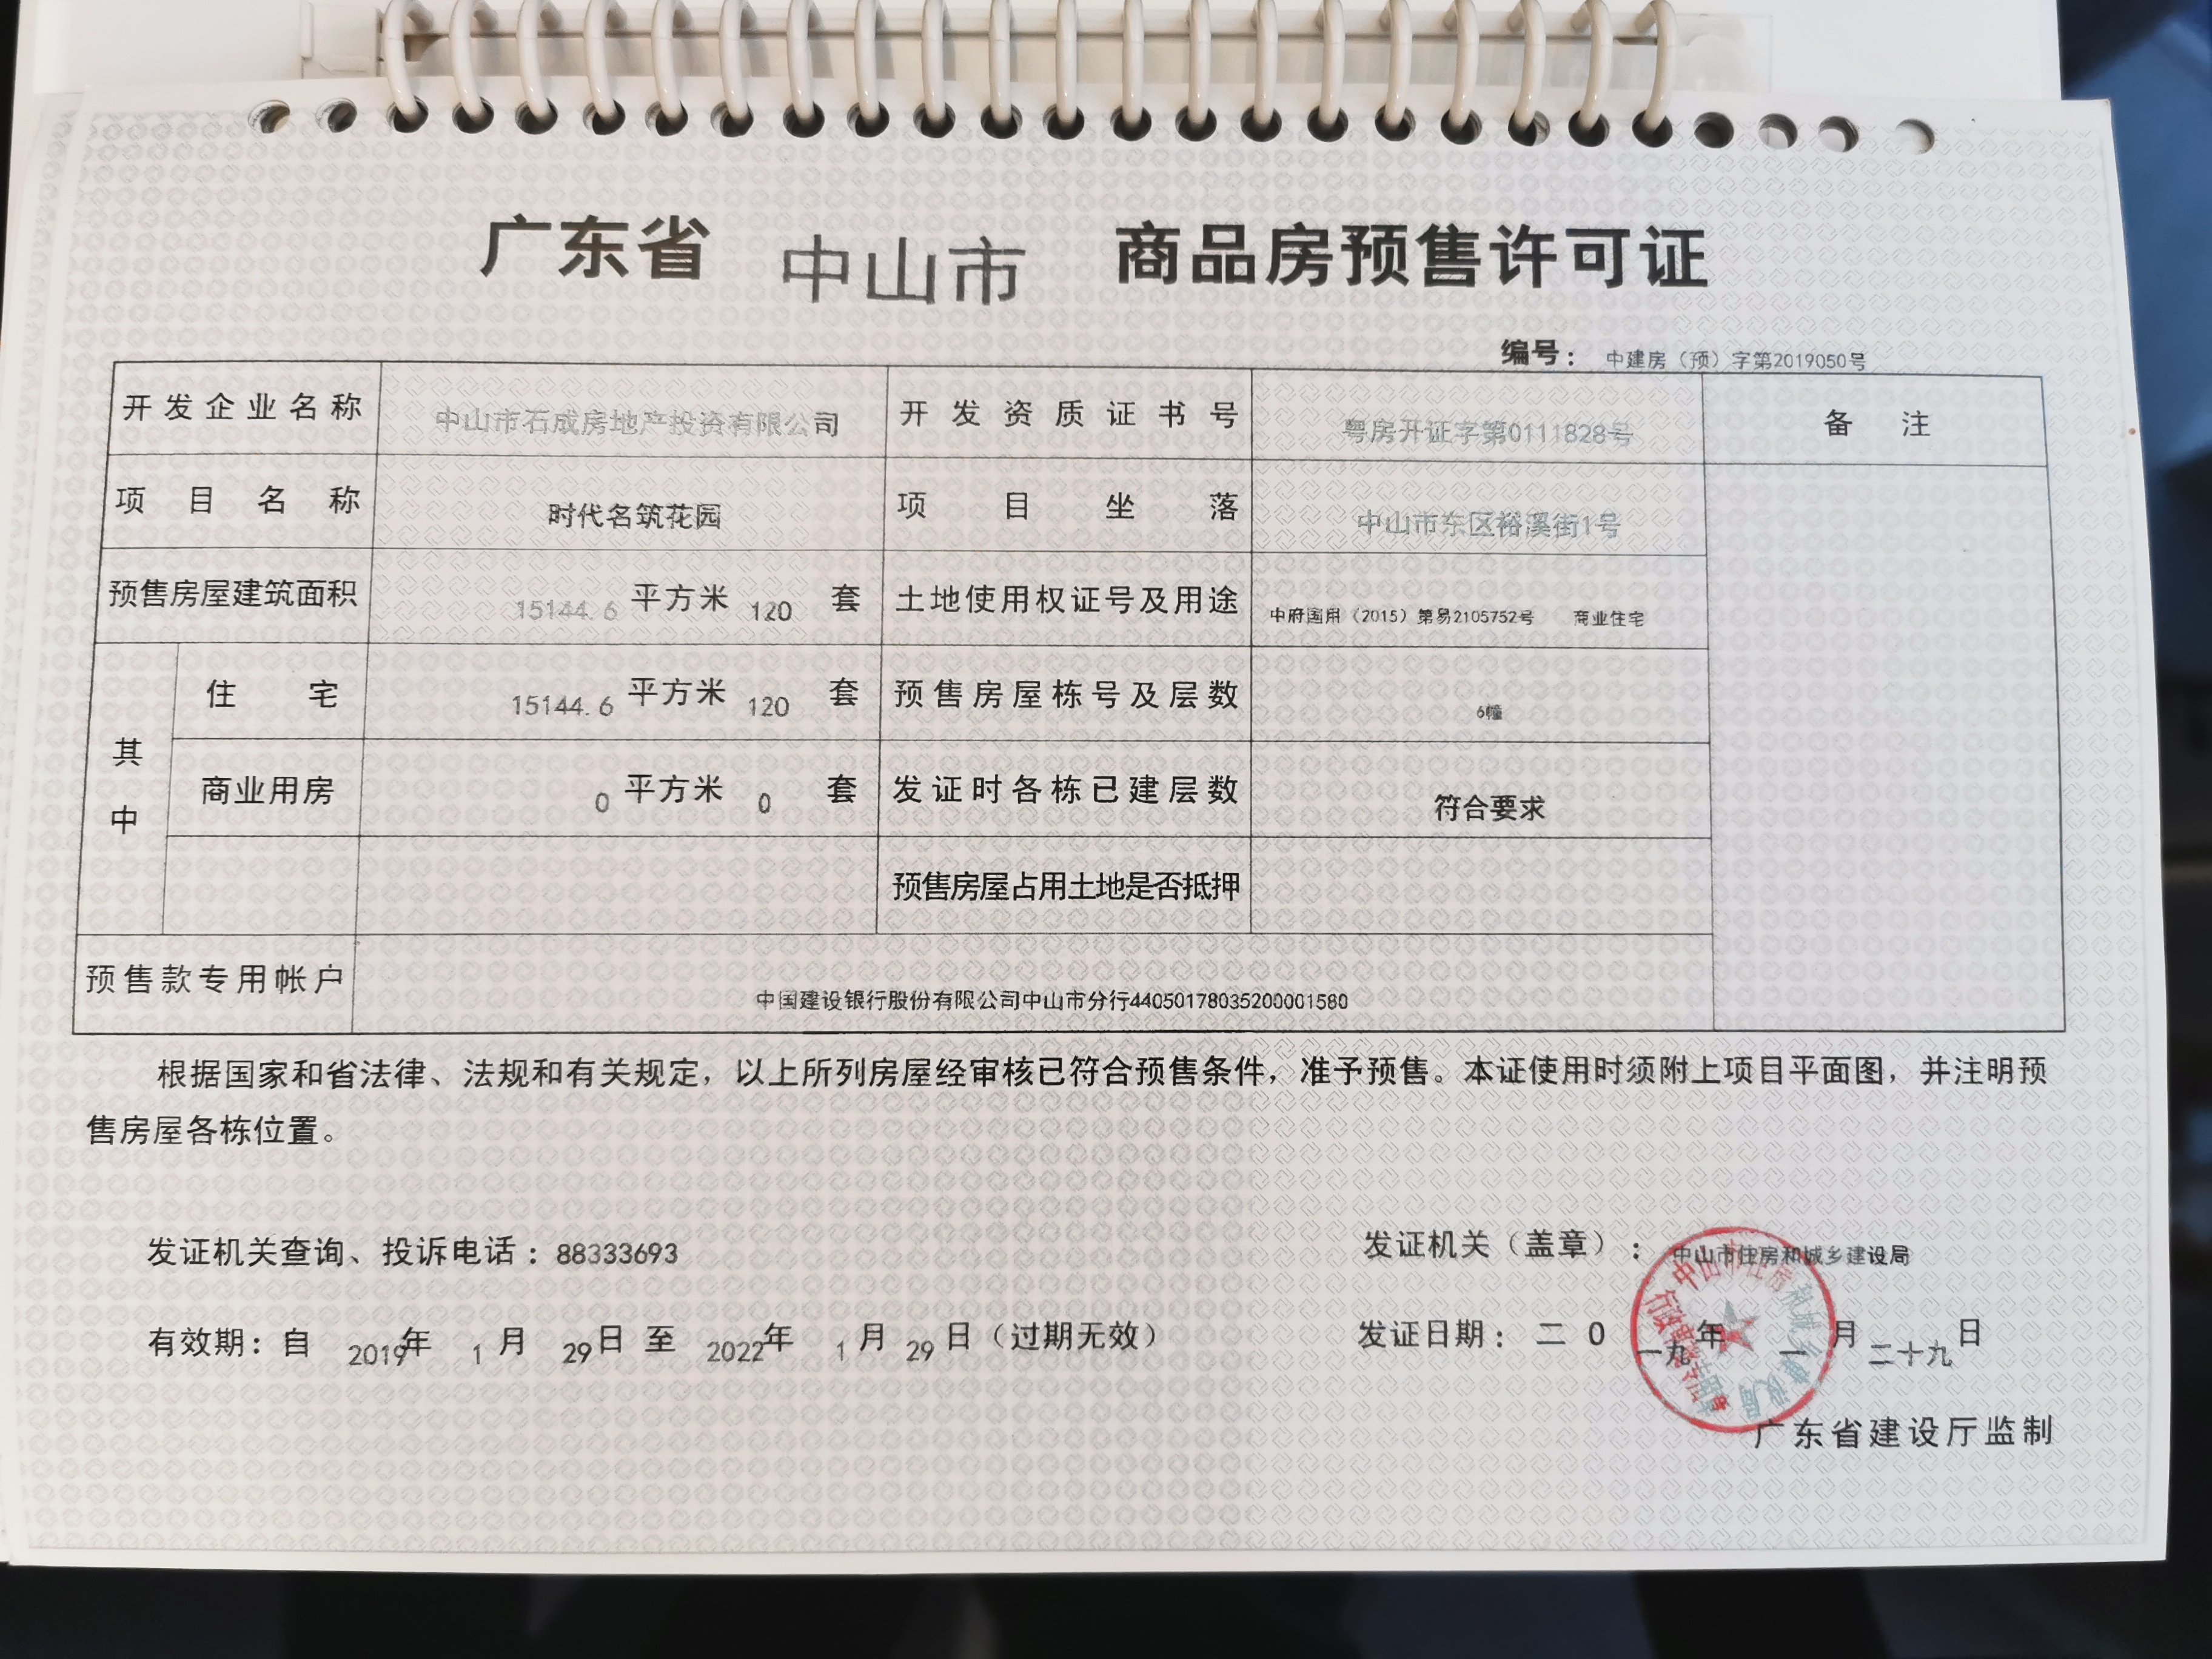 广东省 中山市 商品房预售许可证
编号： 中建房（预）字第2019050号
开发企业名称 中山市石成房地产投资有限公司 开发资质证书号 粤房开证字第0111828号 备注
项目名称 时代名筑花园 项目坐落 中山市东区裕溪街1号
预售房屋建筑面积 15144.6 平方米 120 套 土地使用权证号及用途 中府国用（2015）第易2105752号 商业住宅
其中 住宅 15144.6 平方米 120 套 预售房屋栋号及层数 6幢
商业用房 0 平方米 0 套 发证时各栋已建层数 符合要求
预售房屋占用土地是否抵押
预售款专用帐户 中国建设银行股份有限公司中山市分行44050178035200001580
根据国家和省法律、法规和有关规定，以上所列房屋经审核已符合预售条件，准予预售。本证使用时须附上项目平面图，并注明预
售房屋各栋位置。
发证机关查询、投诉电话：88333693 发证机关（盖章）： 中山市住房和城乡建设局
有效期：自 2019年 1 月 29日 至 2022年 1 月 29 日（过期无效） 发证日期：二0一九年一月二十九日
中山市住房和城乡建设局
广东省建设厅监制